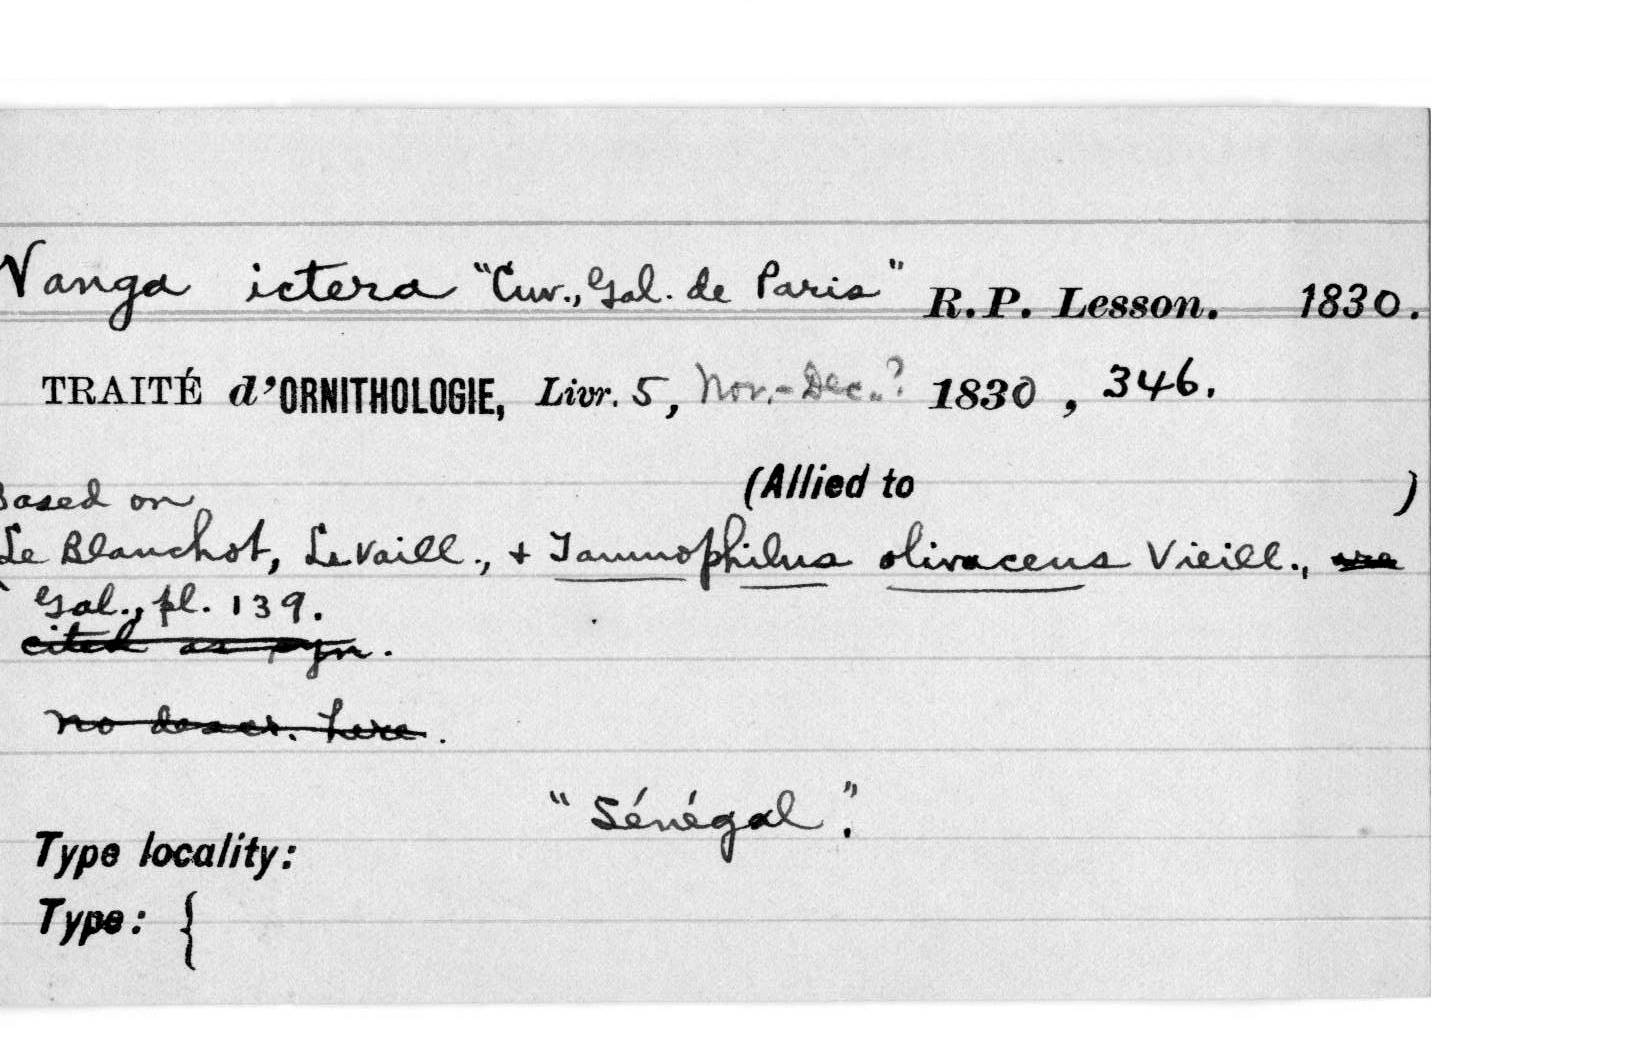 Vanga ictera "Cuv., Gal. de Paris" R.P. Lesson. 1830.
TRAITÉ d'ORNITHOLOGIE, Livr. 5, Nov.-Dec.? 1830, 346.
(Allied to )
Based on
Le Blanchot, LeVaill., + Tamnophilus olivaceus Vieill.,
Gal., pl. 139.
cited as syn.
no descr. here.
"Sénégal".
Type locality:
Type: {